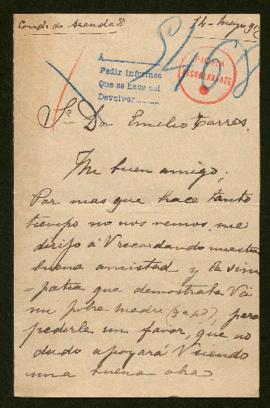 Conde de Aranda 8
14 - Mayo 91
5468
A
Pedir informes
Que se hace así
Devolver
FICHA
RECOMENDANTE
Sr Dn Emilio Torres.
Mi buen amigo.
Por mas que hace tanto
tiempo no nos vemos, me
dirijo á V recordando nuestra
buena amistad y la sim-
patia que demostraba V á
mi pobre madre para
pedirle un favor, que no
dudo apoyará V siendo
una buena obra